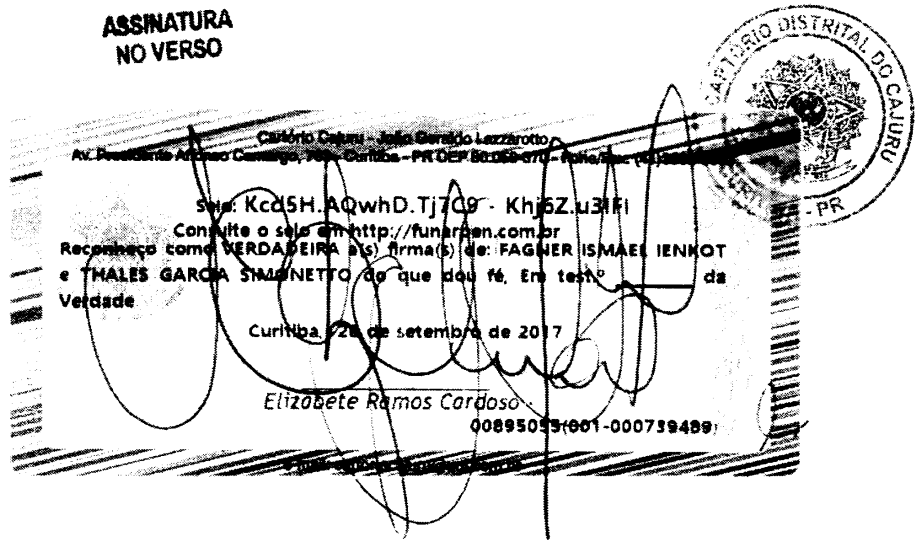 ASSINATURA
NO VERSO
CARTÓRIO DISTRITAL DO CAJURU
- PR
Cartório Cajuru - João Geraldo Lazzarotto
Av. Presidente Affonso Camargo, - Curitiba - PR CEP
Selo: Kcd5H.AQwhD.Tj7C9 -
Consulte o selo em http://funarpen.com.br
Reconheço como VERDADEIRA a(s) firma(s) de: FAGNER ISMAEL IENKOT
e THALES GARCIA SIMONETTO do que dou fé, Em test.º ________ da
Verdade
Curitiba, de setembro de 2017
Elizabete Ramos Cardoso -